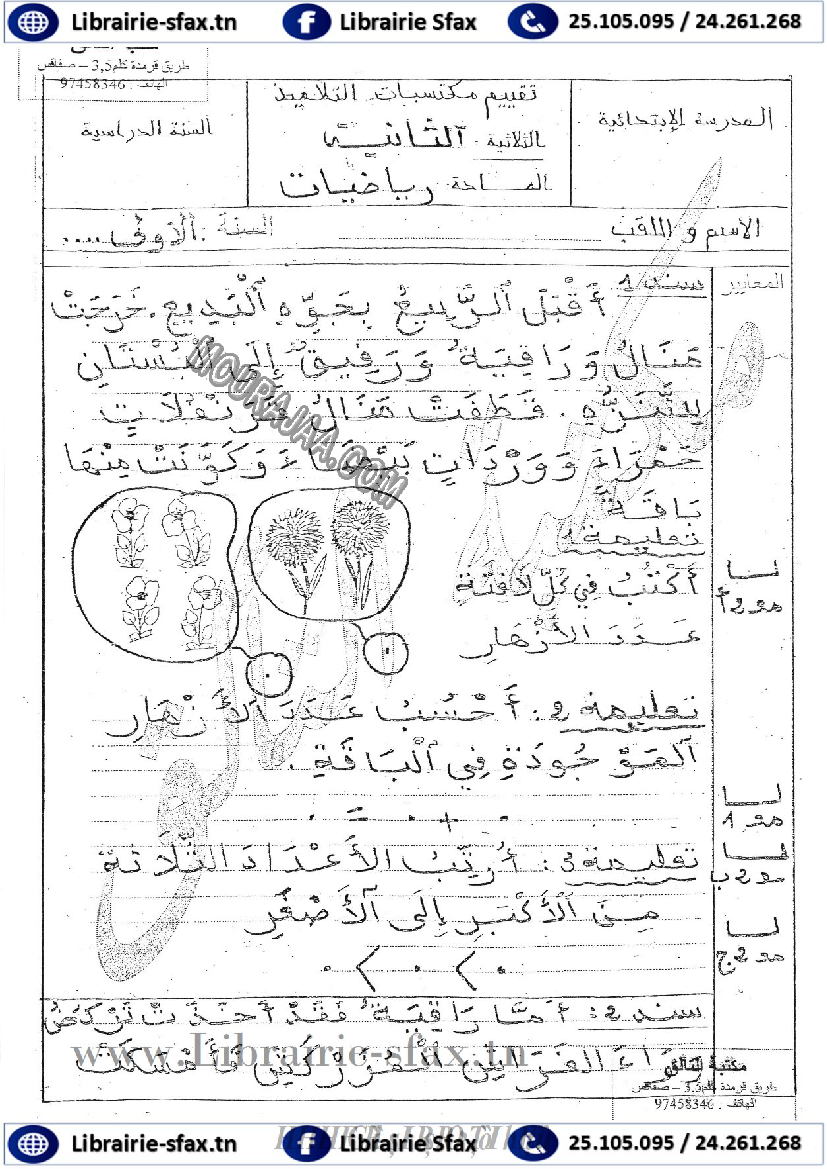 Librairie-sfax.tn Librairie Sfax 25.105.095 / 24.261.268
طريق قرمدة كلم3,5 – صفاقس
الهاتف : 97458346
المدرسة الإبتدائية
تقييم مكتسبات التلاميذ
الثلاثية : الثانية
المادة : رياضيات
السنة الدراسية
الإسم و اللقب
السنة : الأولى .....
المعايير
سند 1 أَقْبَلَ الرَّبِيعُ بِجَوِّهِ الْبَدِيعِ. خَرَجَتْ
مَنَالُ وَرَاقِيَةُ وَرَفِيقٌ إِلَى الْبُسْتَانِ
لِلتَّنَزُّهِ. قَطَفَتْ مَنَالُ قَرَنْفُلَاتٍ
حَمْرَاءَ وَوَرْدَاتٍ بَيْضَاءَ وَكَوَّنَتْ مِنْهَا
بَاقَةً
MOURAJAA.COM
تعليمة 1
أَكْتُبُ فِي كُلِّ لَافِتَةٍ
عَدَدَ الأَزْهَارِ
مع 2 أ
تعليمة 2 : أَحْسُبُ عَدَدَ الأَزْهَارِ
الْمَوْجُودَةِ فِي الْبَاقَةِ .
. + . = .
مع 1
تعليمة 3 : أُرَتِّبُ الأَعْدَادَ الثَّلَاثَةَ
مع 2 ب
مِنَ الْأَكْبَرِ إِلَى الْأَصْغَرِ
مع 2 ج
. > . > .
سند 2 : أَمَّا رَاقِيَةُ فَقَدْ أَخَذَتْ تَرْكُضُ
وَرَاءَ الفَرَاشِ الْمُزَرْكَشِ فَأَمْسَكَتْ
www.Librairie-sfax.tn
طريق قرمدة كلم3,5 – صفاقس
الهاتف : 97458346
Librairie-sfax.tn Librairie Sfax 25.105.095 / 24.261.268